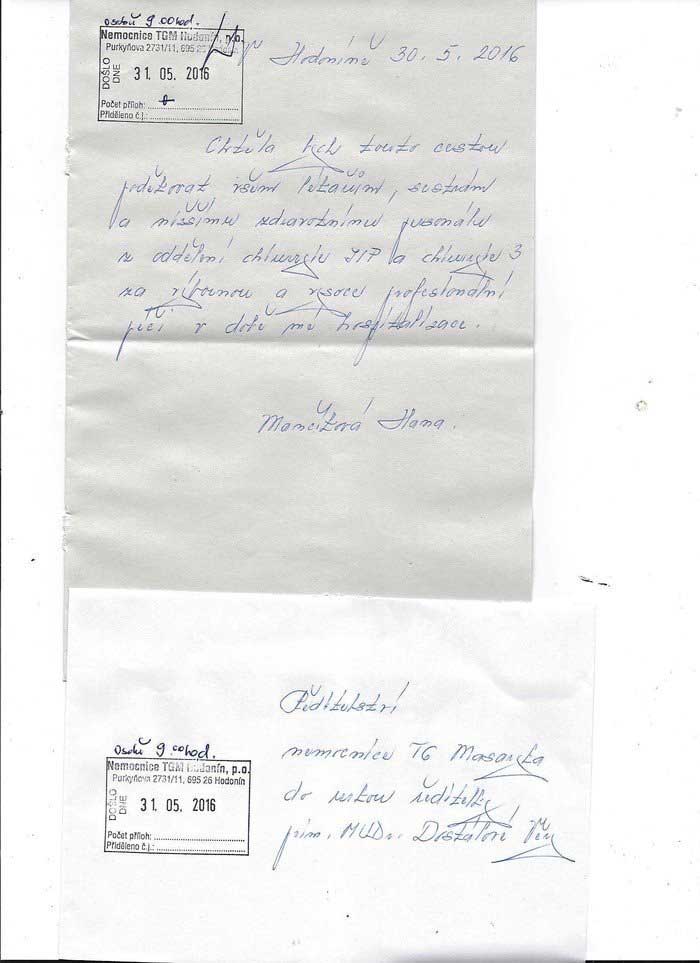 osobně 9.00 hod.
Nemocnice TGM Hodonín, p.o.
Purkyňova 2731/11, 695 26 Hodonín
DOŠLO
DNE
31. 05. 2016
Počet příloh:
Přiděleno č.j.:
V Hodoníně 30. 5. 2016
Chtěla bych touto cestou
poděkovat všem lékařům, sestrám
a nižšímu zdravotnímu personálu
z oddělení chirurgie JIP a chirurgie 3
za výbornou a vysoce profesionální
péči v době mé hospitalizace.
Hana
Ředitelství
nemocnice TG Masaryka
do rukou ředitelky
prim. MUDr. Dostálové Věry
osobně 9.00 hod.
Nemocnice TGM Hodonín, p.o.
Purkyňova 2731/11, 695 26 Hodonín
DOŠLO
DNE
31. 05. 2016
Počet příloh:
Přiděleno č.j.: